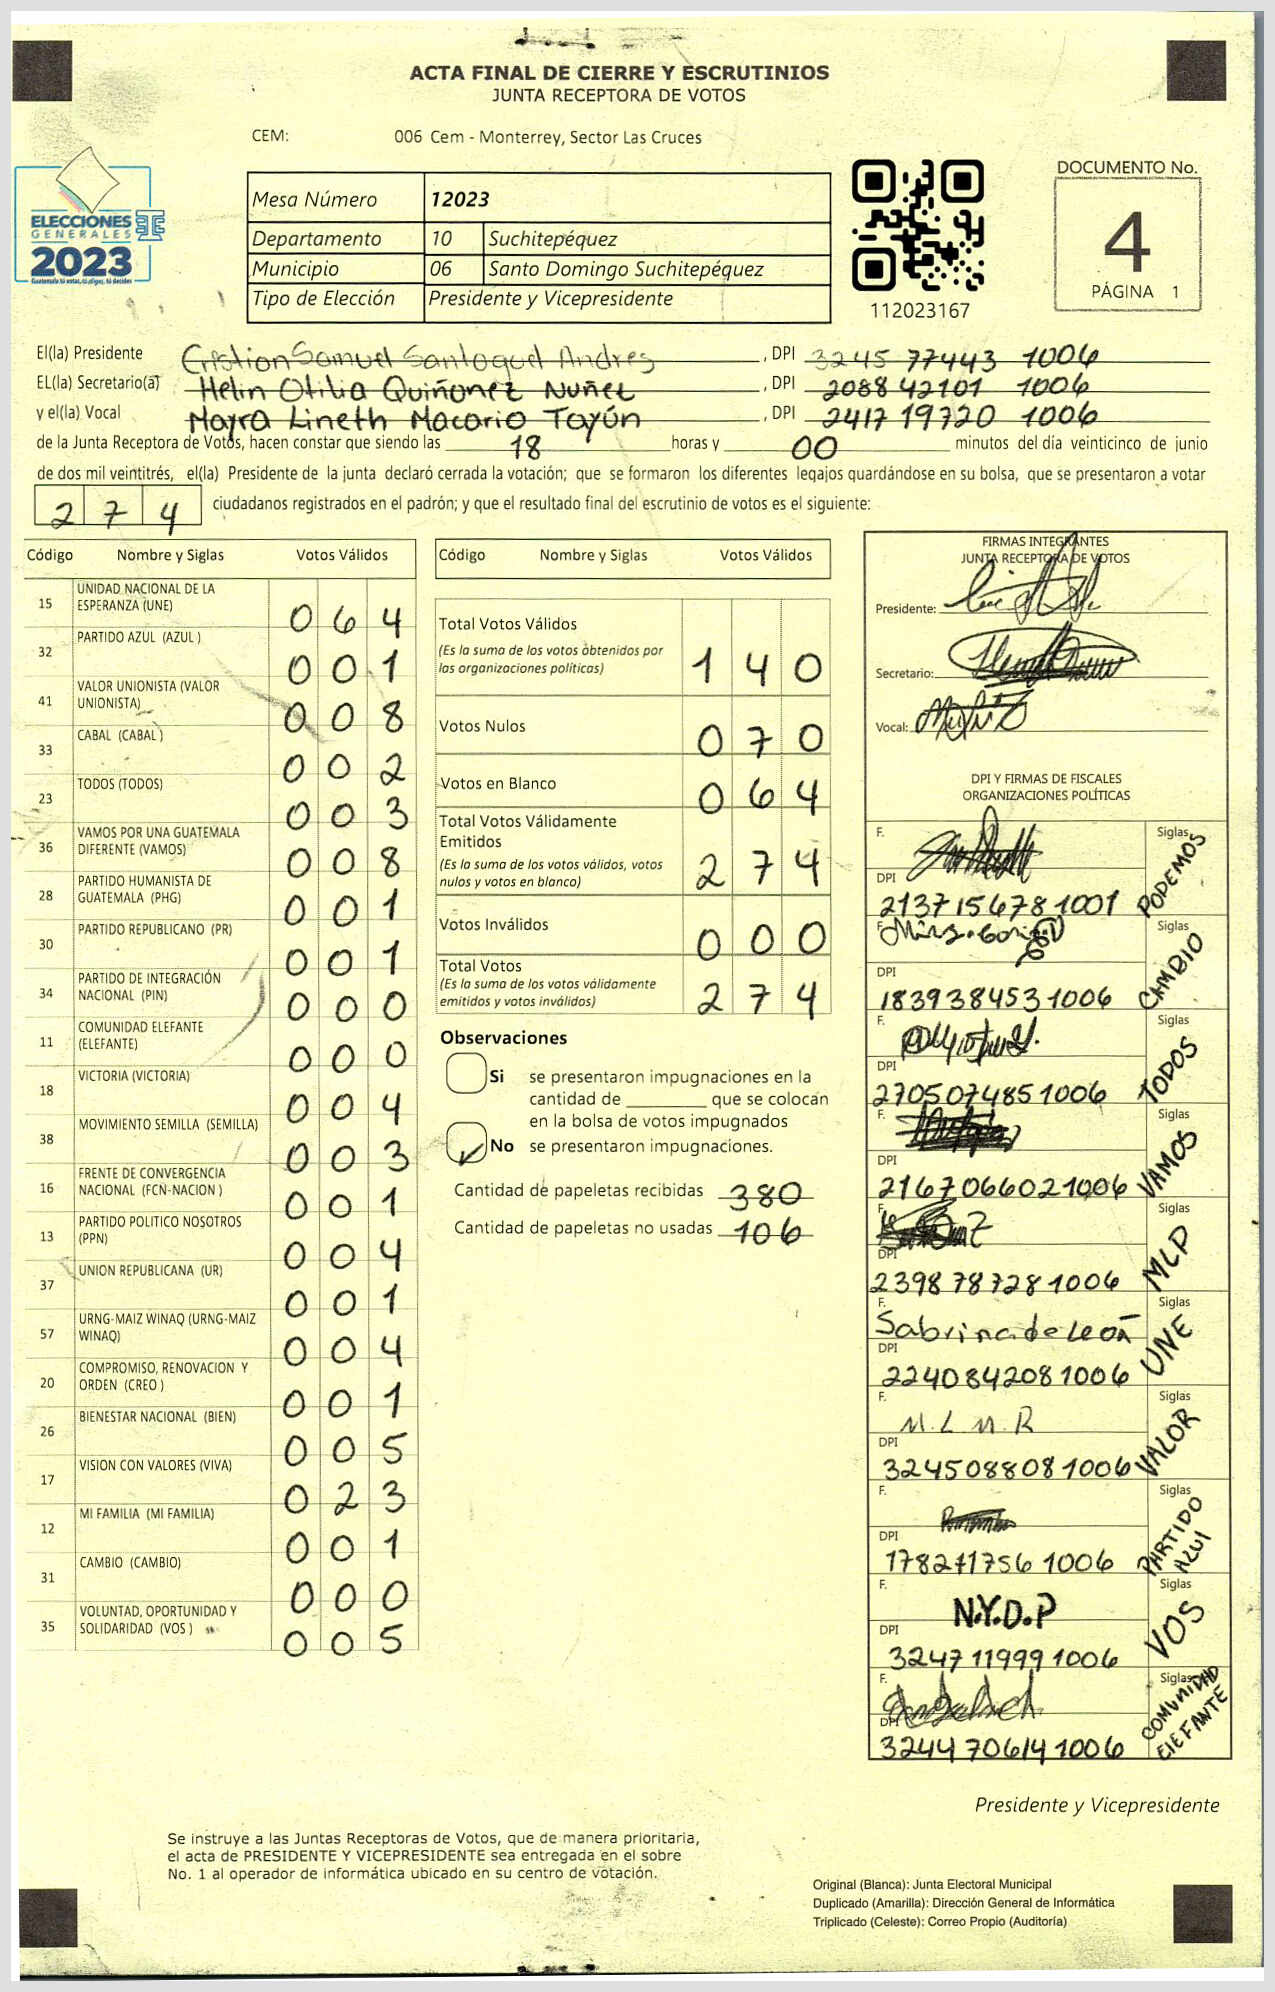 ACTA FINAL DE CIERRE Y ESCRUTINIOS
JUNTA RECEPTORA DE VOTOS
CEM: 006 Cem - Monterrey, Sector Las Cruces
ELECCIONES
GENERALES
2023
Guatemala tú votas, tú eliges, tú decides
Mesa Número 12023
Departamento 10 Suchitepéquez
Municipio 06 Santo Domingo Suchitepéquez
Tipo de Elección Presidente y Vicepresidente
112023167
DOCUMENTO No.
4
PÁGINA 1
El(la) Presidente Cristian Samuel Santoquel Andres, DPI 3245 77443 1006
EL(la) Secretario(a) Helin Otilia Quiñonez Nuñez, DPI 2088 42101 1006
y el(la) Vocal Mayra Lineth Macario Tayún, DPI 2417 19720 1006
de la Junta Receptora de Votos, hacen constar que siendo las 18 horas y 00 minutos del día veinticinco de junio
de dos mil veintitrés, el(la) Presidente de la junta declaró cerrada la votación; que se formaron los diferentes legajos quardándose en su bolsa, que se presentaron a votar
274 ciudadanos registrados en el padrón; y que el resultado final del escrutinio de votos es el siguiente:
Código Nombre y Siglas Votos Válidos
15 UNIDAD NACIONAL DE LA ESPERANZA (UNE) 064
32 PARTIDO AZUL (AZUL ) 001
41 VALOR UNIONISTA (VALOR UNIONISTA) 008
33 CABAL (CABAL ) 002
23 TODOS (TODOS) 003
36 VAMOS POR UNA GUATEMALA DIFERENTE (VAMOS) 008
28 PARTIDO HUMANISTA DE GUATEMALA (PHG) 001
30 PARTIDO REPUBLICANO (PR) 001
34 PARTIDO DE INTEGRACIÓN NACIONAL (PIN) 000
11 COMUNIDAD ELEFANTE (ELEFANTE) 000
18 VICTORIA (VICTORIA) 004
38 MOVIMIENTO SEMILLA (SEMILLA) 003
16 FRENTE DE CONVERGENCIA NACIONAL (FCN-NACION ) 001
13 PARTIDO POLITICO NOSOTROS (PPN) 004
37 UNION REPUBLICANA (UR) 001
57 URNG-MAIZ WINAQ (URNG-MAIZ WINAQ) 004
20 COMPROMISO, RENOVACION Y ORDEN (CREO ) 001
26 BIENESTAR NACIONAL (BIEN) 005
17 VISION CON VALORES (VIVA) 023
12 MI FAMILIA (MI FAMILIA) 001
31 CAMBIO (CAMBIO) 000
35 VOLUNTAD, OPORTUNIDAD Y SOLIDARIDAD (VOS ) 005
Código Nombre y Siglas Votos Válidos
Total Votos Válidos
(Es la suma de los votos obtenidos por
las organizaciones políticas) 140
Votos Nulos 070
Votos en Blanco 064
Total Votos Válidamente
Emitidos
(Es la suma de los votos válidos, votos
nulos y votos en blanco) 274
Votos Inválidos 000
Total Votos
(Es la suma de los votos válidamente
emitidos y votos inválidos) 274
Observaciones
Si se presentaron impugnaciones en la
cantidad de ________ que se colocan
en la bolsa de votos impugnados
No se presentaron impugnaciones.
Cantidad de papeletas recibidas 380
Cantidad de papeletas no usadas 106
FIRMAS INTEGRANTES
JUNTA RECEPTORA DE VOTOS
Presidente:
Secretario:
Vocal:
DPI Y FIRMAS DE FISCALES
ORGANIZACIONES POLÍTICAS
F. Siglas PODEMOS
DPI 2137 15678 1001
F. Siglas CAMBIO
DPI 1839384531006
F. Siglas TODOS
DPI 2705074851006
F. Siglas VAMOS
DPI 2167066021006
F. Siglas MLP
DPI 2398787281006
F. Sabrina de León Siglas UNE
DPI 2240842081006
F. M.L M.R Siglas VALOR
DPI 3245088081006
F. Siglas PARTIDO AZUL
DPI 1006
F. N.Y.D.P Siglas VOS
DPI 3247119991006
F. Siglas COMUNIDAD ElEFANTE
DPI 3244706141006
Presidente y Vicepresidente
Se instruye a las Juntas Receptoras de Votos, que de manera prioritaria,
el acta de PRESIDENTE Y VICEPRESIDENTE sea entregada en el sobre
No. 1 al operador de informática ubicado en su centro de votación.
Original (Blanca): Junta Electoral Municipal
Duplicado (Amarilla): Dirección General de Informática
Triplicado (Celeste): Correo Propio (Auditoría)